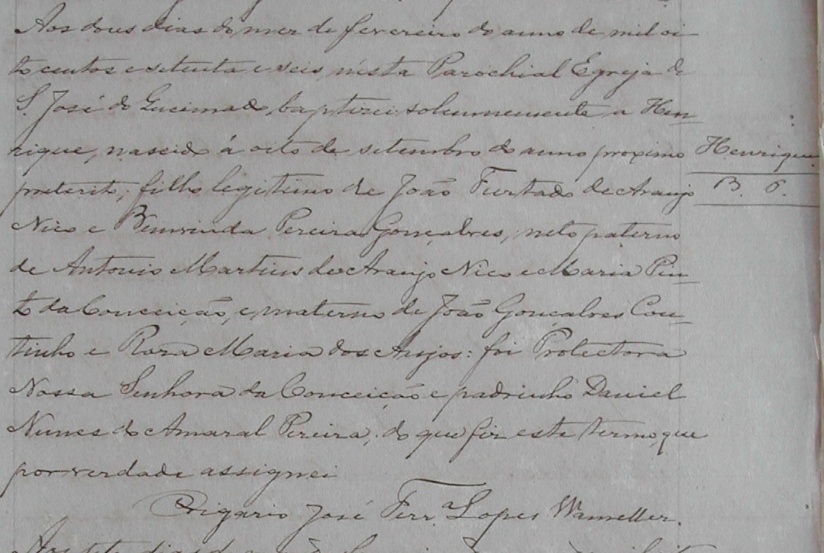 Aos dous dias do mez de fevereiro do anno de mil oi-
to centos e setenta e seis, nesta Parochial Egreja de
S. José do Queimado, baptizei solemnemente a Hen-
rique, nascido á oito de setembro do anno proximo
preterito; filho legitimo de João Furtado de Araujo
Nico e Bemvinda Pereira Gonçalves, neto paterno
de Antonio Martins de Araujo Nico e Maria Pin-
to da Conceição, e materno de João Gonçalves Cou-
tinho e Roza Maria dos Anjos: foi Protectora
Nossa Senhora da Conceição e padrinho Daniel
Nunes do Amaral Pereira, do que fiz este termo, que
por verdade assignei
Vigario José Ferr.a Lopes
Henrique
B.
Aos